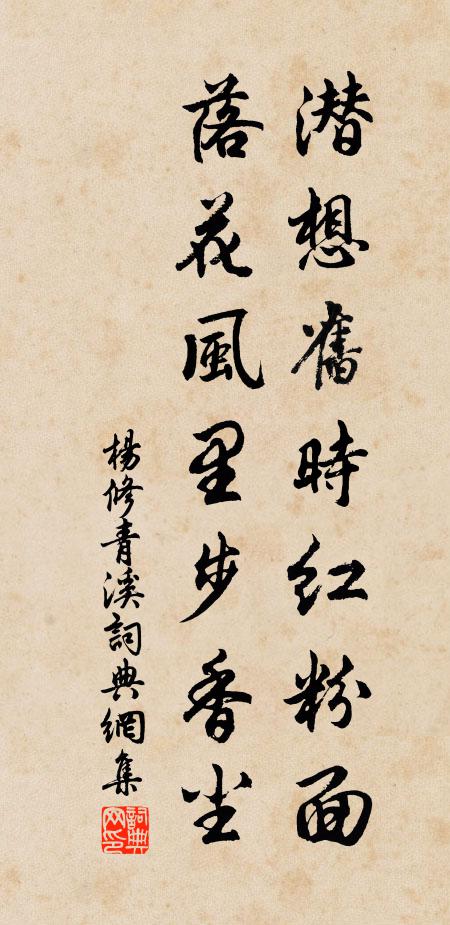 潜想舊時紅粉面
落花風里步香尘
楊修青溪詞典網集
詞典网印